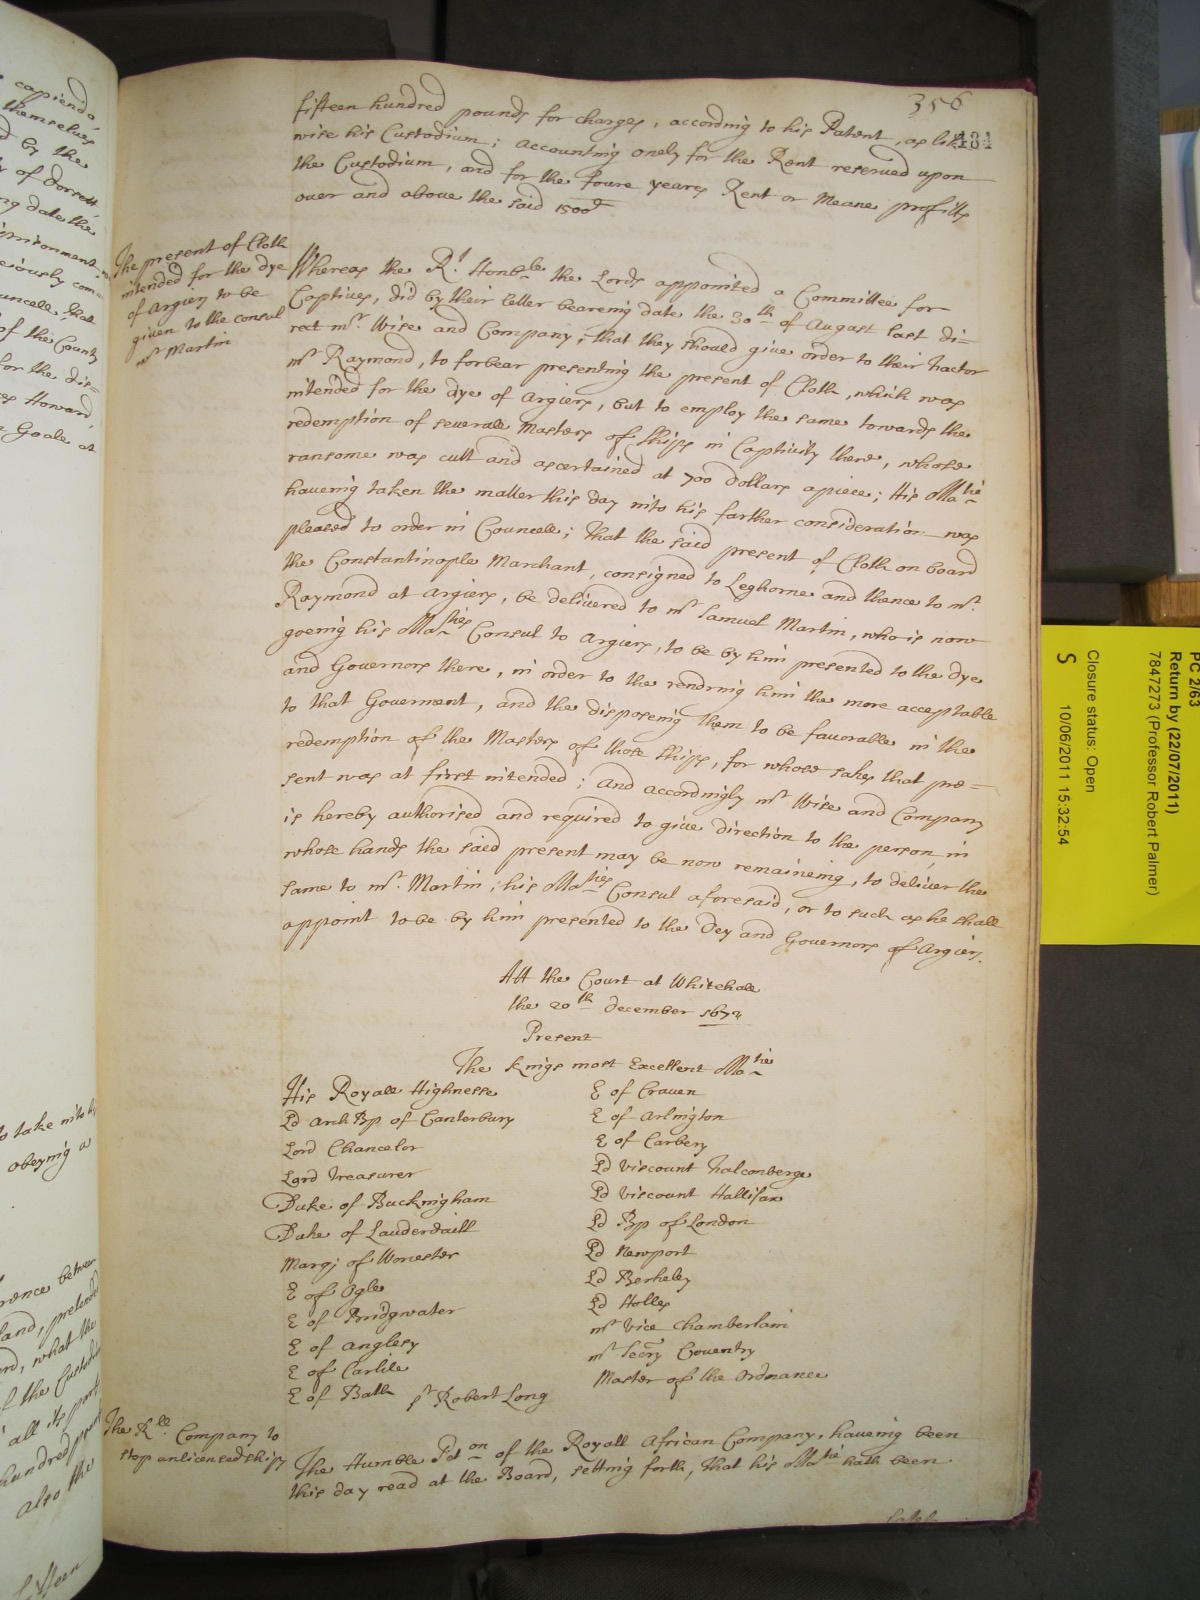 356
184
fifteen hundred pounds for charges, according to his Patent, as like
wise his Custodium; accounting onely for the Rent reserved upon
the Custodium, and for the foure yeares Rent or Meane profitts
over and above the said 1500ll
The present of Cloth
intended for the dye
of Argiers to be
given to the consul
mr Martin
Whereas the Rt. Honble the Lords appointed a Committee for
Captives, did by their letter beareing date the 30th of August last di=
rect mr. Wise and Company, that they should give order to their factor
mr Raymond, to forbear presenting the present of Cloth, which was
intended for the dye of Argiers, but to employ the same towards the
redemption of severall Masters of ships in Captivity there, whose
ransome was cutt and ascertained at 700 dollars apiece; His Matie
haveing taken the matter this day into his farther consideration was
pleased to order in Councell; That the said present of Cloth on board
the Constantinople Marchant, consigned to Leghorne and thence to mr.
Raymond at Argiers, be delivered to mr Samuel Martin, who is now
goeing his Maties Consul to Argiers, to be by him presented to the dye
and Governors there, in order to the rendring him the more acceptable
to that Goverment, and the disposeing them to be favorable in the
redemption of the Masters of those ships, for whose sakes that pre=
sent was at first intended; And accordingly mr Wise and Company
is hereby authorised and required to give direction to the person, in
whose hands the said present may be now remaineing, to deliver the
same to mr. Martin, his Maties Consul aforesaid, or to such as he shall
appoint to be by him presented to the Dey and Governors of Argiers.
Att the Court at Whitehall
the 20th december 1672
Present
The kings most Excellent Matie
His Royall Highnesse
Ld Arch Bp of Canterbury
Lord Chancelor
Lord Treasurer
Duke of Buckingham
Duke of Lauderdaill
Marq; of Worcester
E of Ogle
E of Bridgwater
E of Anglesy
E of Carlile
E of Bath
Sr Robert Long
E of Craven
E of Arlington
E of Carbery
Ld Viscount Falconberge
Ld Viscount Hallifax
Ld Bp of London
Ld Newport
Ld Berkeley
Ld Holles
mr Vice Chamberlain
mr Secry Coventry
Master of the Ordnance
The Rll Company to
stop unlicensed ships
The Humble Peton of the Royall African Company, haveing been
this day read at the Board, setting forth, That his Matie hath been
PC 2/63
Return by (22/07/2011)
7847273 (Professor Robert Palmer)
Closure status: Open
S 10/06/2011 15:32:54